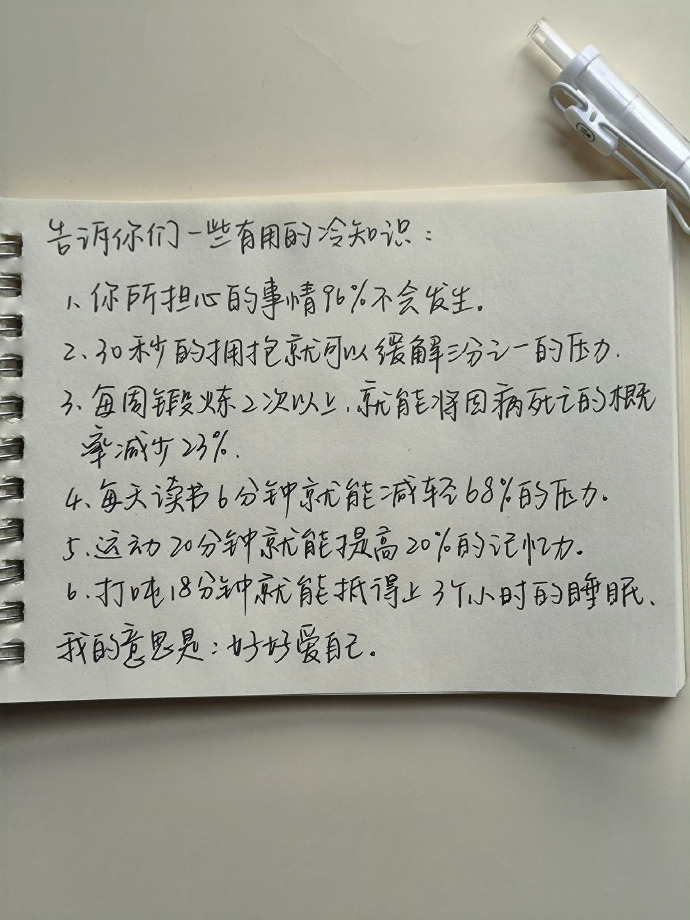 告诉你们一些有用的冷知识：
1、你所担心的事情96%不会发生。
2、30秒的拥抱就可以缓解三分之一的压力.
3、每周锻炼2次以上、就能将因病死亡的概
率减少23%.
4、每天读书6分钟就能减轻68%的压力。
5、运动20分钟就能提高20%的记忆力。
6、打吨18分钟就能抵得上3个小时的睡眠、
我的意思是：好好爱自己。